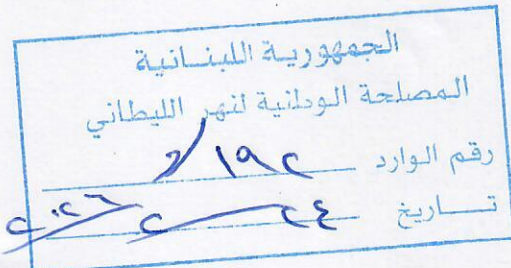 الجمهورية اللبنانية
المصلحة الوطنية لنهر الليطاني
رقم الوارد ١٩٢/٢
تاريخ ٢٤/٢/٢٠٢٦